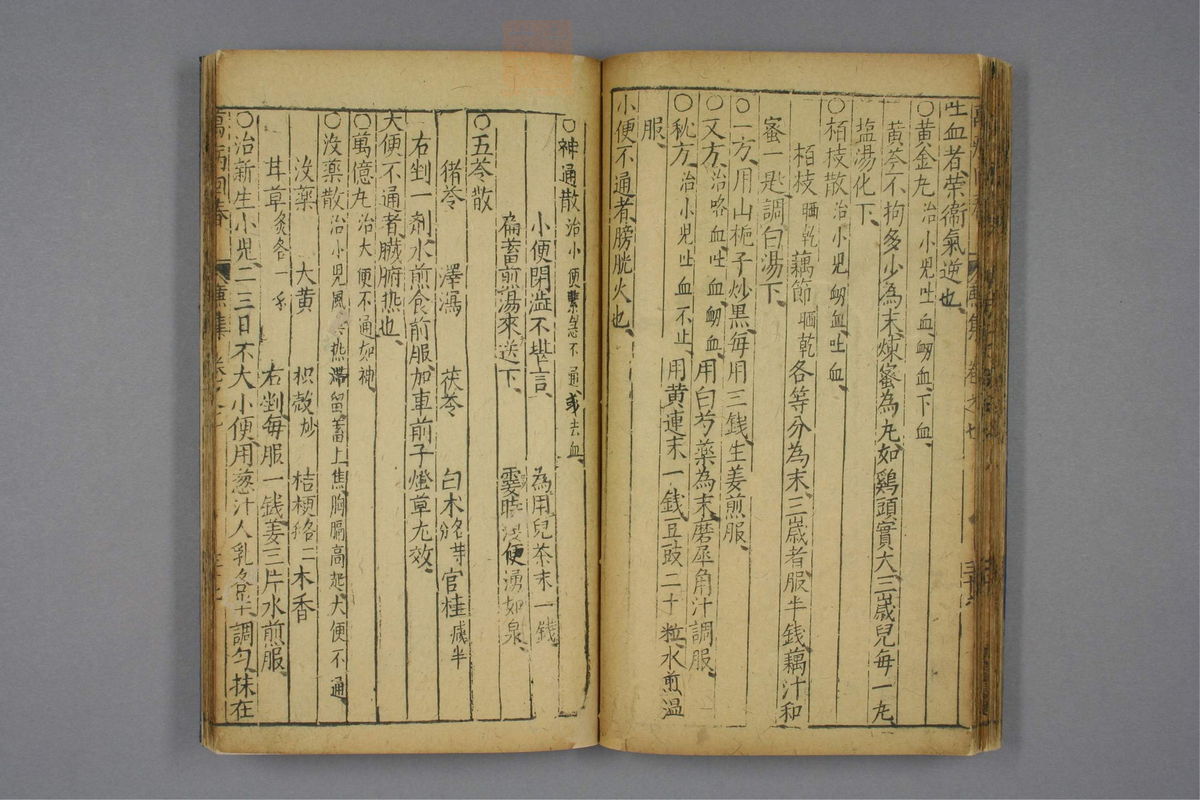 吐血者榮衛氣逆也
○黃金丸治小児吐血衂血下血
黃芩不拘多少為末煉蜜為丸如鷄頭實大三歲兒每一丸
塩湯化下
○栢枝散治小児衂血吐血
栢枝晒乾藕節晒乾各等分為末三歲者服半錢藕汁和
蜜一匙調白湯下
○一方用山梔子炒黒每用三錢生姜煎服
○又方治咯血吐血衂血用白芍藥為末磨犀角汁調服
○秘方治小児吐血不止用黃連末一錢豆豉二十粒水煎溫
服
小便不通者膀胱火也
○神通散治小便緊急不通或去血
小便閉澁不堪言為用兒茶末一錢
萹蓄煎湯來送下霎時便湧如泉
○五苓散
猪苓澤瀉茯苓白朮各等分官桂減半
右剉一劑水煎食前服加車前子燈草尤效
大便不通者臟腑热也
○萬億丸治大便不通如神
○沒藥散治小児風热滯留蓄上焦胸膈高起大便不通
沒藥大黃枳殻炒桔梗各二木香
甘草炙各一右剉每服一錢姜三片水煎服
○治新生小児二三日不大小便用葱汁人乳各半調匀抹在
萬病囬春